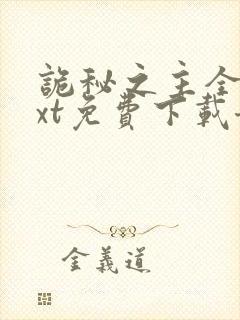 詭秘之主全
xt免費下載
金義道